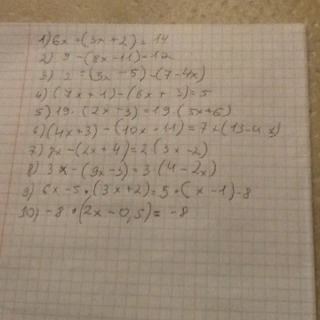 1) 6x + (3x + 2) = 14
2) 9 - (8x - 11) = 12
3) = (3x - 5) - (7 - 4x)
4) (7x + 1) - (6x + 3) = 5
5) 19 · (2x - 3) = 19 · (5x + 6)
6) (4x + 3) - (10x + 11) = 7 + (13 - 4
7) - (2x + 4) = 2 · (3x - 2)
8) 3x - (9x - 3) = 3 · (4 - 2x)
9) 6x - 5 · (3x + 2) = 5 · (x - 1) - 8
10) -8 · (2x - 0,5) = -8